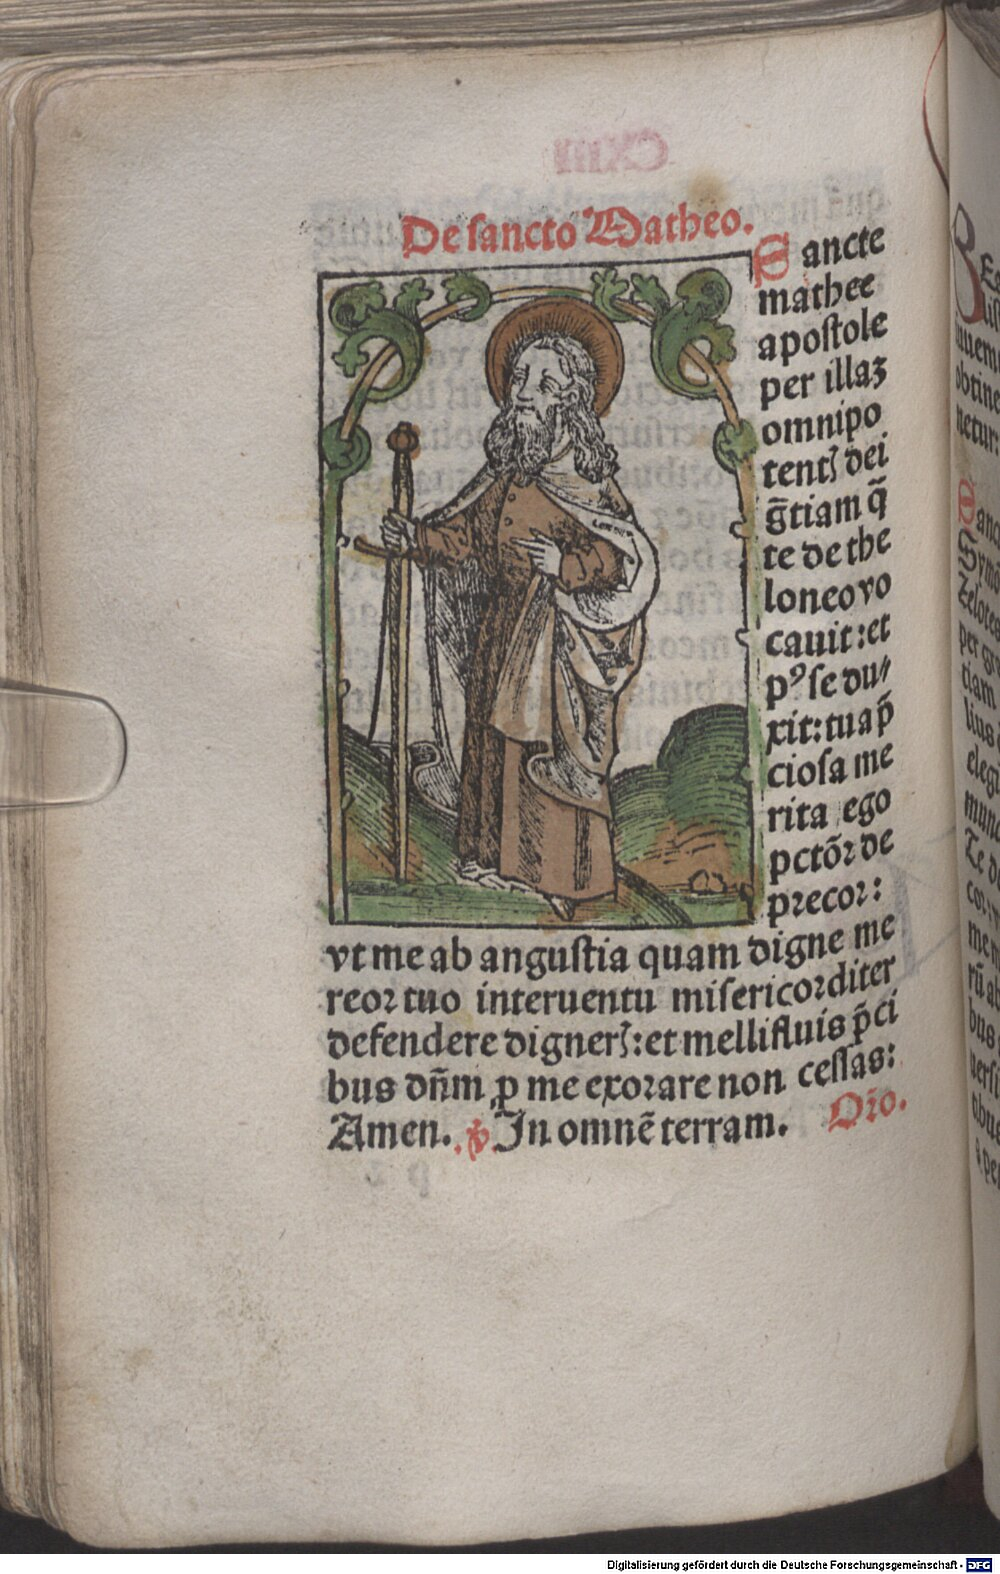 De sancto Matheo.
Sancte
mathee
apostole
per illaȝ
omnipo
tentꝭ dei
gr̄tiam q̄
te de the
loneo vo
cauit: et
pꝰ se du⸗
xit: tua p̄
ciosa me
rita ego
pctōꝛ de
precor:
vt me ab angustia quam digne me
reor tuo interuentu misericorditer
defendere dignerꝭ: et mellifluis p̄ci
bus dn̄m ꝓ me exorare non cessas:
Amen. ℣. In omnē terram. Oꝛ̄o.
Digitalisierung gefördert durch die Deutsche Forschungsgemeinschaft - DFG